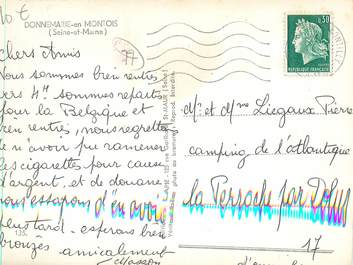 10 €
DONNEMARIE-en MONTOIS
(Seine-et-Marne)
77
0,50
REPUBLIQUE FRANÇAISE
chers Amis
Nous sommes bien rentrés
vers 4H. sommes repartis
pour la Belgique et
bien rentrés, nous regrettons
de n'avoir pu ramener
les cigarettes pour cause
d'argent. et de douane
nous essayons d'en avoir
plus tard. espérons bien
bronzés amicalement
Mr et Mme Liegaux Pierre
camping de l'atlantique
la Perroche par Dolus
17
135.